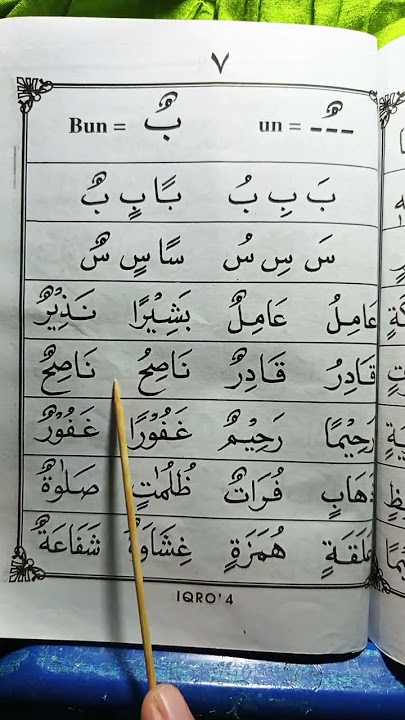 ٧
ـٌ = un بٌ = Bun
بَ بِ بُ بًا بٍ بٌ
سَ سِ سُ سًا سٍ سٌ
عَامِلُ عَامِلٌ بَشِيْرًا نَذِيْرٌ
قَادِرُ قَادِرٌ نَاصِحُ نَاصِحٌ
رَحِيْمًا رَحِيْمٌ غَفُوْرًا غَفُوْرٌ
ذَهَابٍ فُرَاتٌ ظُلُمٰتٍ صَلٰوةٌ
عَلَقَةٍ هُمَزَةٍ غِشَاوَةٌ شَفَاعَةٌ
IQRO' 4